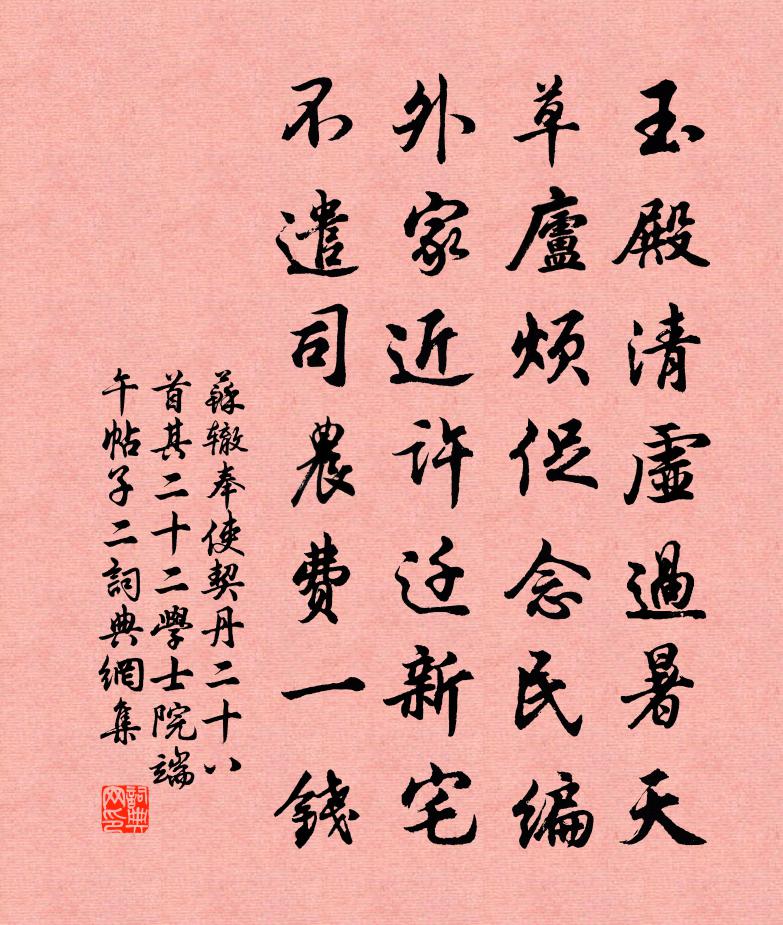 玉殿清虛過暑天
草廬煩促念民編
外家近許迁新宅
不遣司農費一錢
蘇辙奉使契丹二十八
首其二十二學士院端
午帖子二詞典網集
詞典网印